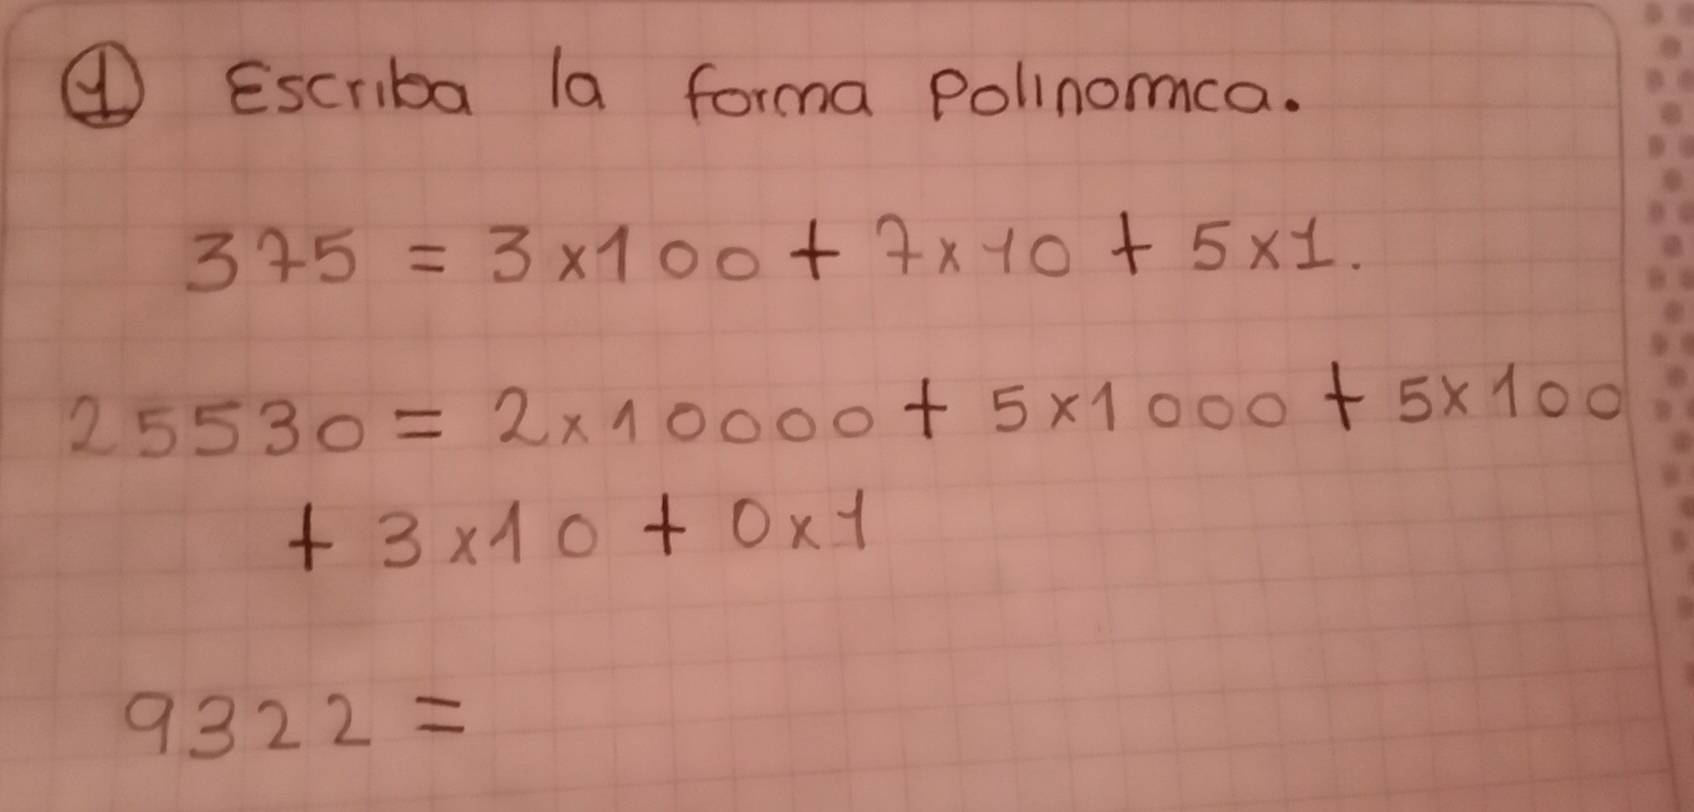 ① Escriba la forma Polinomica.
375 = 3x100 + 7x10 + 5x1.
25530 = 2x10000 + 5x1000 + 5x100
+ 3x10 + 0x1
9322 =